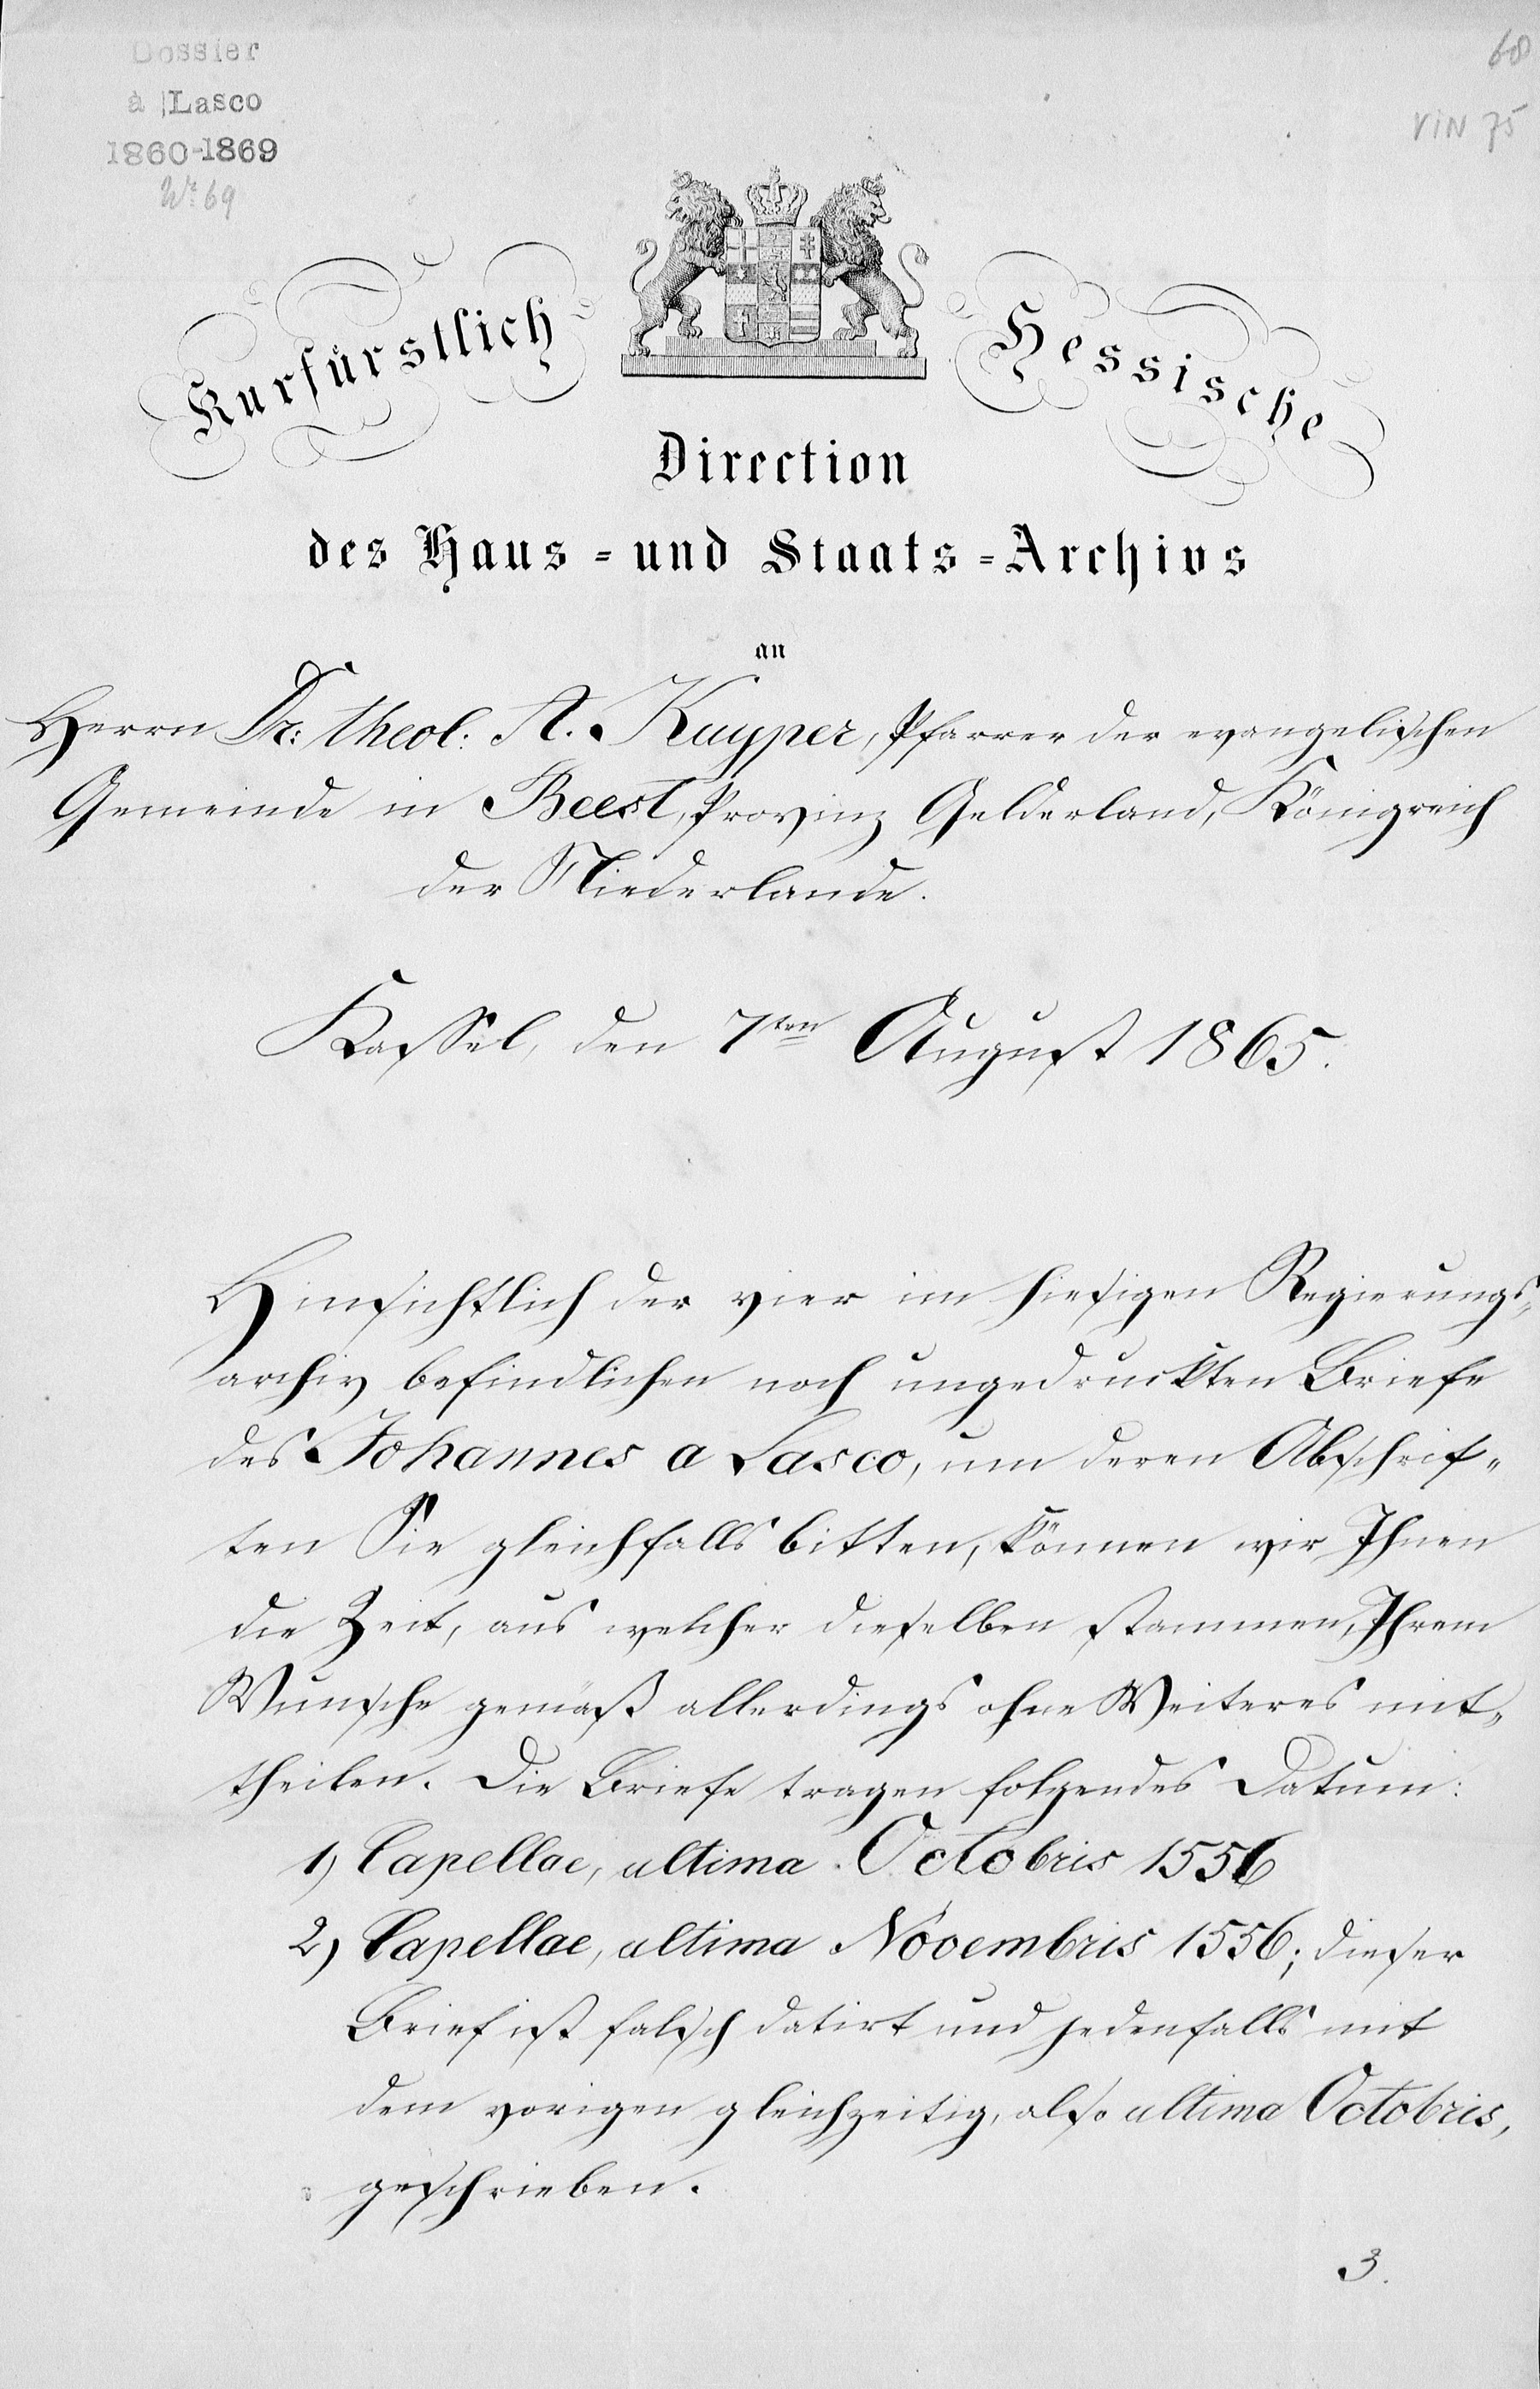 Dossier
à Lasco
1860-1869
No 69
60
VIN 75
Kurfürstlich Hessische
Direction
des Haus- und Staats-Archivs
an
Herrn Dr. theol. A. Kuyper, Pfarrer der evangelischen
Gemeinde in Beest, Provinz Gelderland, Königreich
der Niederlande.
Kassel, den 7ten August 1865.
Hinsichtlich der vier im hiesigen Regierungs-
archiv befindlichen noch ungedruckten Briefe
des Johannes a Lasco, um deren Abschrif-
ten Sie gleichfalls bitten, können wir Ihnen
die Zeit, aus welcher dieselben stammen, Ihrem
Wunsche gemäß allerdings ohne Weiteres mit-
theilen. Die Briefe tragen folgendes Datum:
1) Capellae, ultima Octobris 1556
2) Capellae, ultima Novembris 1556; dieser
Brief ist falsch datirt und jedenfalls mit
dem vorigen gleichzeitig, also ultima Octobris,
geschrieben.
3.